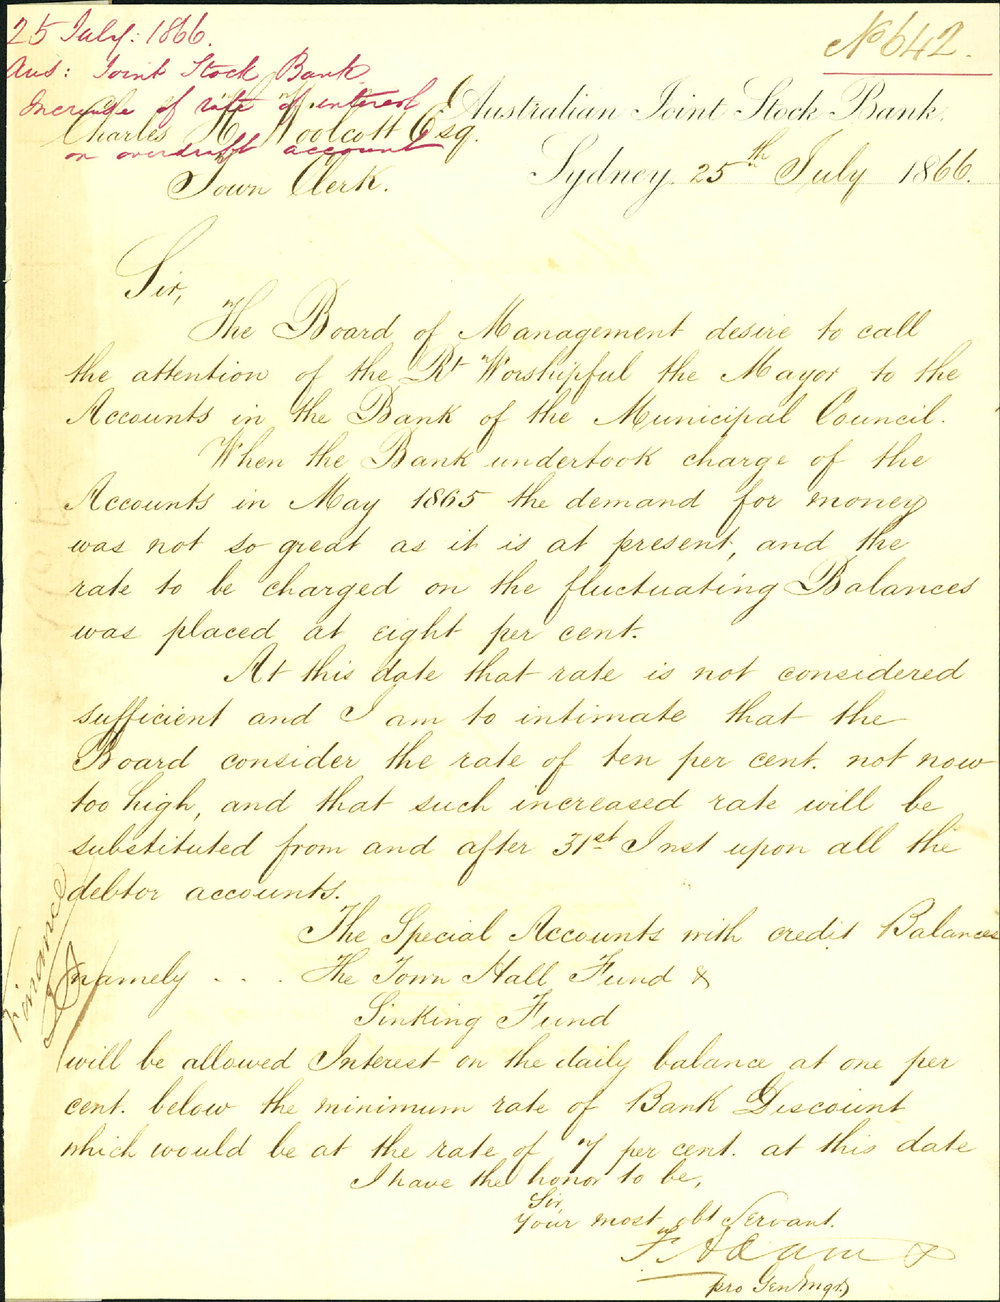 25 July: 1866.
Aus: Joint Stock Bank
Increase of rate of interest
on overdraft account
No 642.
Australian Joint Stock Bank,
Sydney. 25th July 1866.
Charles H. Woolcott Esq.
Town Clerk.
Sir,
The Board of Management desire to call
the attention of the Rt Worshipful the Mayor to the
Accounts in the Bank of the Municipal Council.
When the Bank undertook charge of the
Accounts in May 1865 the demand for money
was not so great as it is at present, and the
rate to be charged on the fluctuating Balances
was placed at eight per cent.
At this date that rate is not considered
sufficient and I am to intimate that the
Board consider the rate of ten per cent. not now
too high, and that such increased rate will be
substituted from and after 31st Inst upon all the
debtor accounts.
The Special Accounts with credit Balances
namely - - . The Town Hall Fund &
Sinking Fund
will be allowed Interest on the daily balance at one per
cent. below the minimum rate of Bank Discount
which would be at the rate of 7 per cent. at this date
I have the honor to be,
Sir,
Your most obt Servant.
F. Adams
pro Gen Mngr
Finance